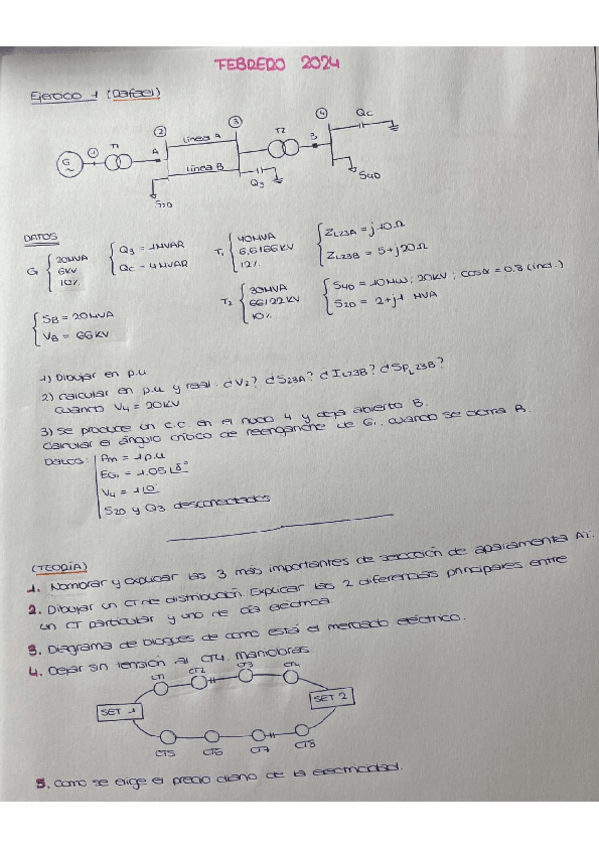 FEBRERO 2024
Ejercicio 1 (Rafael)
G ~ 1 T1 2 A Línea A 3 T2 B 4 Qc
Línea B
Q3 S4D
S2D
DATOS
G 20MVA 6KV 10%
Q3 = 1MVAR
Qc = 4MVAR
T1 40MVA 6,6|66KV 12%
ZL23A = j10Ω
ZL23B = 5+j20Ω
SB = 20MVA
VB = 66KV
T2 30MVA 66|22KV 10%
S4D = 10MW; 20KV; cosα = 0.8 (ind.)
S2D = 2+j1 MVA
1) Dibujar en p.u
2) Calcular en p.u y real: ¿V2? ¿S23A? ¿IL23B? ¿SPL23B?
cuando V4 = 20KV
3) Se produce un c.c. en el nudo 4 y deja abierto B.
Calcular el ángulo crítico de reenganche de G1. cuando se
Datos: Am = 1p.u
EG1 = 1.05 δ°
V4 = 1 0°
S2D y Q3 desconectados
(TEORÍA)
1. Nombrar y explicar las 3 más importantes de selección de aparamenta AT.
2. Dibujar un CT de distribución. Explicar las 2 diferencias principales entre
un CT particular y uno de cía eléctrica.
3. Diagrama de bloques de como está el mercado eléctrico.
4. Dejar sin tensión al CT4. maniobras
CT1 CT2 CT3
SET 1 SET 2
CT5 CT6 CT7 CT8
5. Como se elige el precio diario de la electricidad.